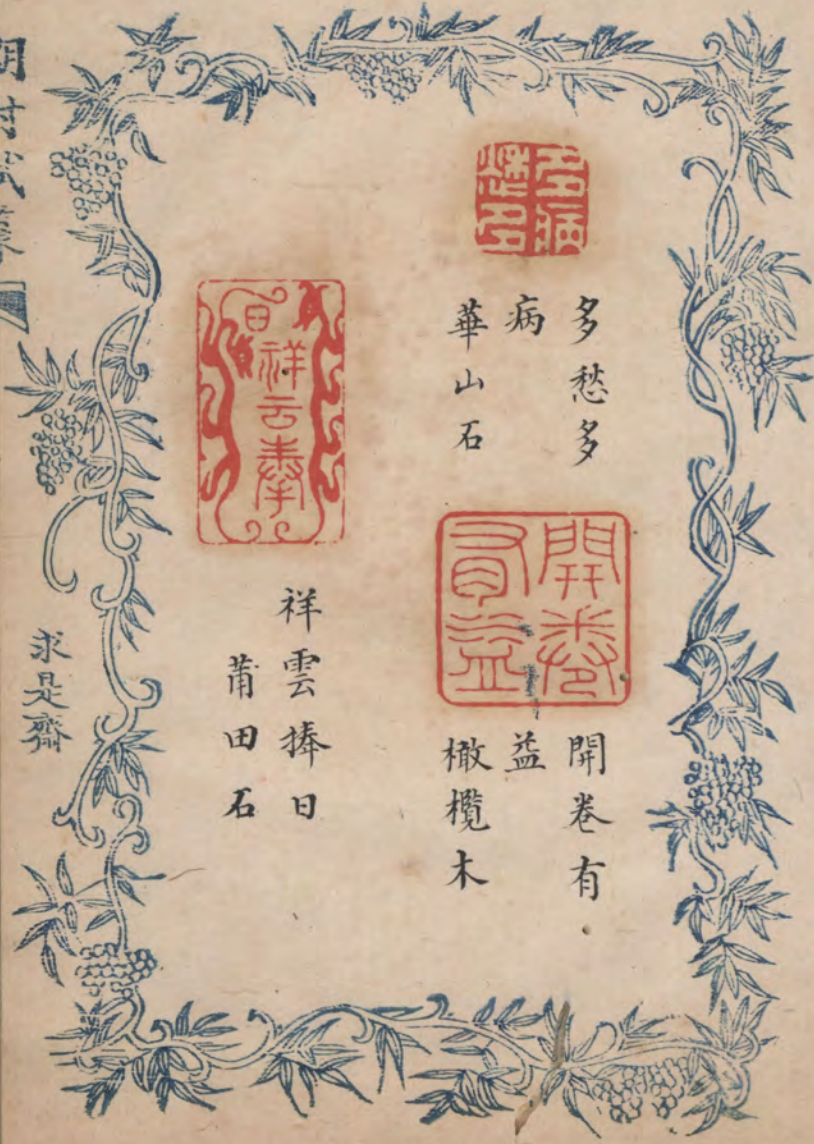 多愁多
病
華山石
開卷有
益
橄欖木
祥雲捧日
莆田石
求是齋